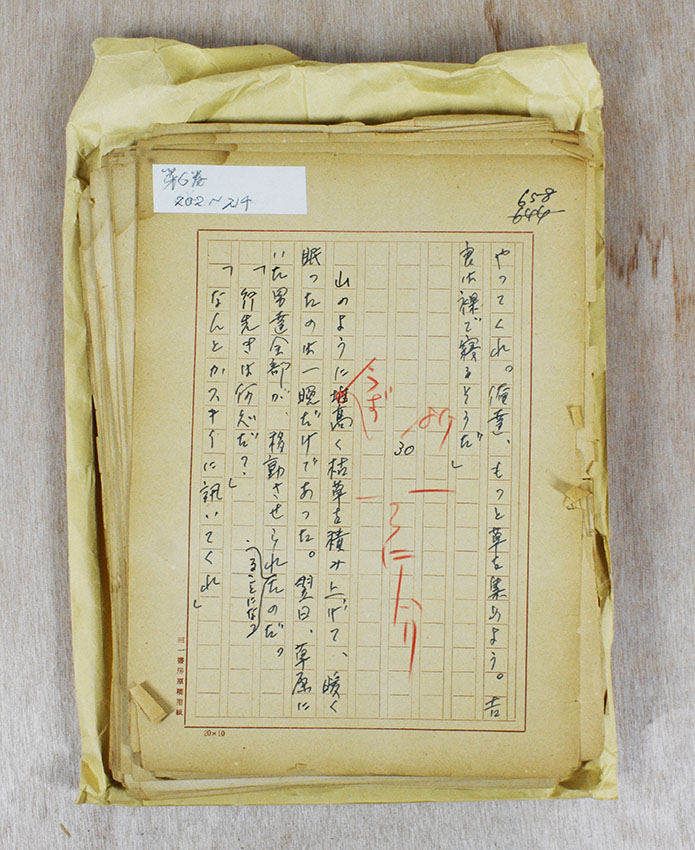 第6巻
202〜214
658
644
やってくれ。俺達、もっと草を集めよう。吉
良は裸で寝るそうだ」
より
30
うず
山のように堆高く枯草を積み上げて、暖く
眠ったのは一晩だけであった。翌日、草原に
いた男達全部が、移動させられたのだ。
ることになつ
「行先きは何処だ?」
「なんとかスキーに訊いてくれ」
三一書房原稿用紙
20×10